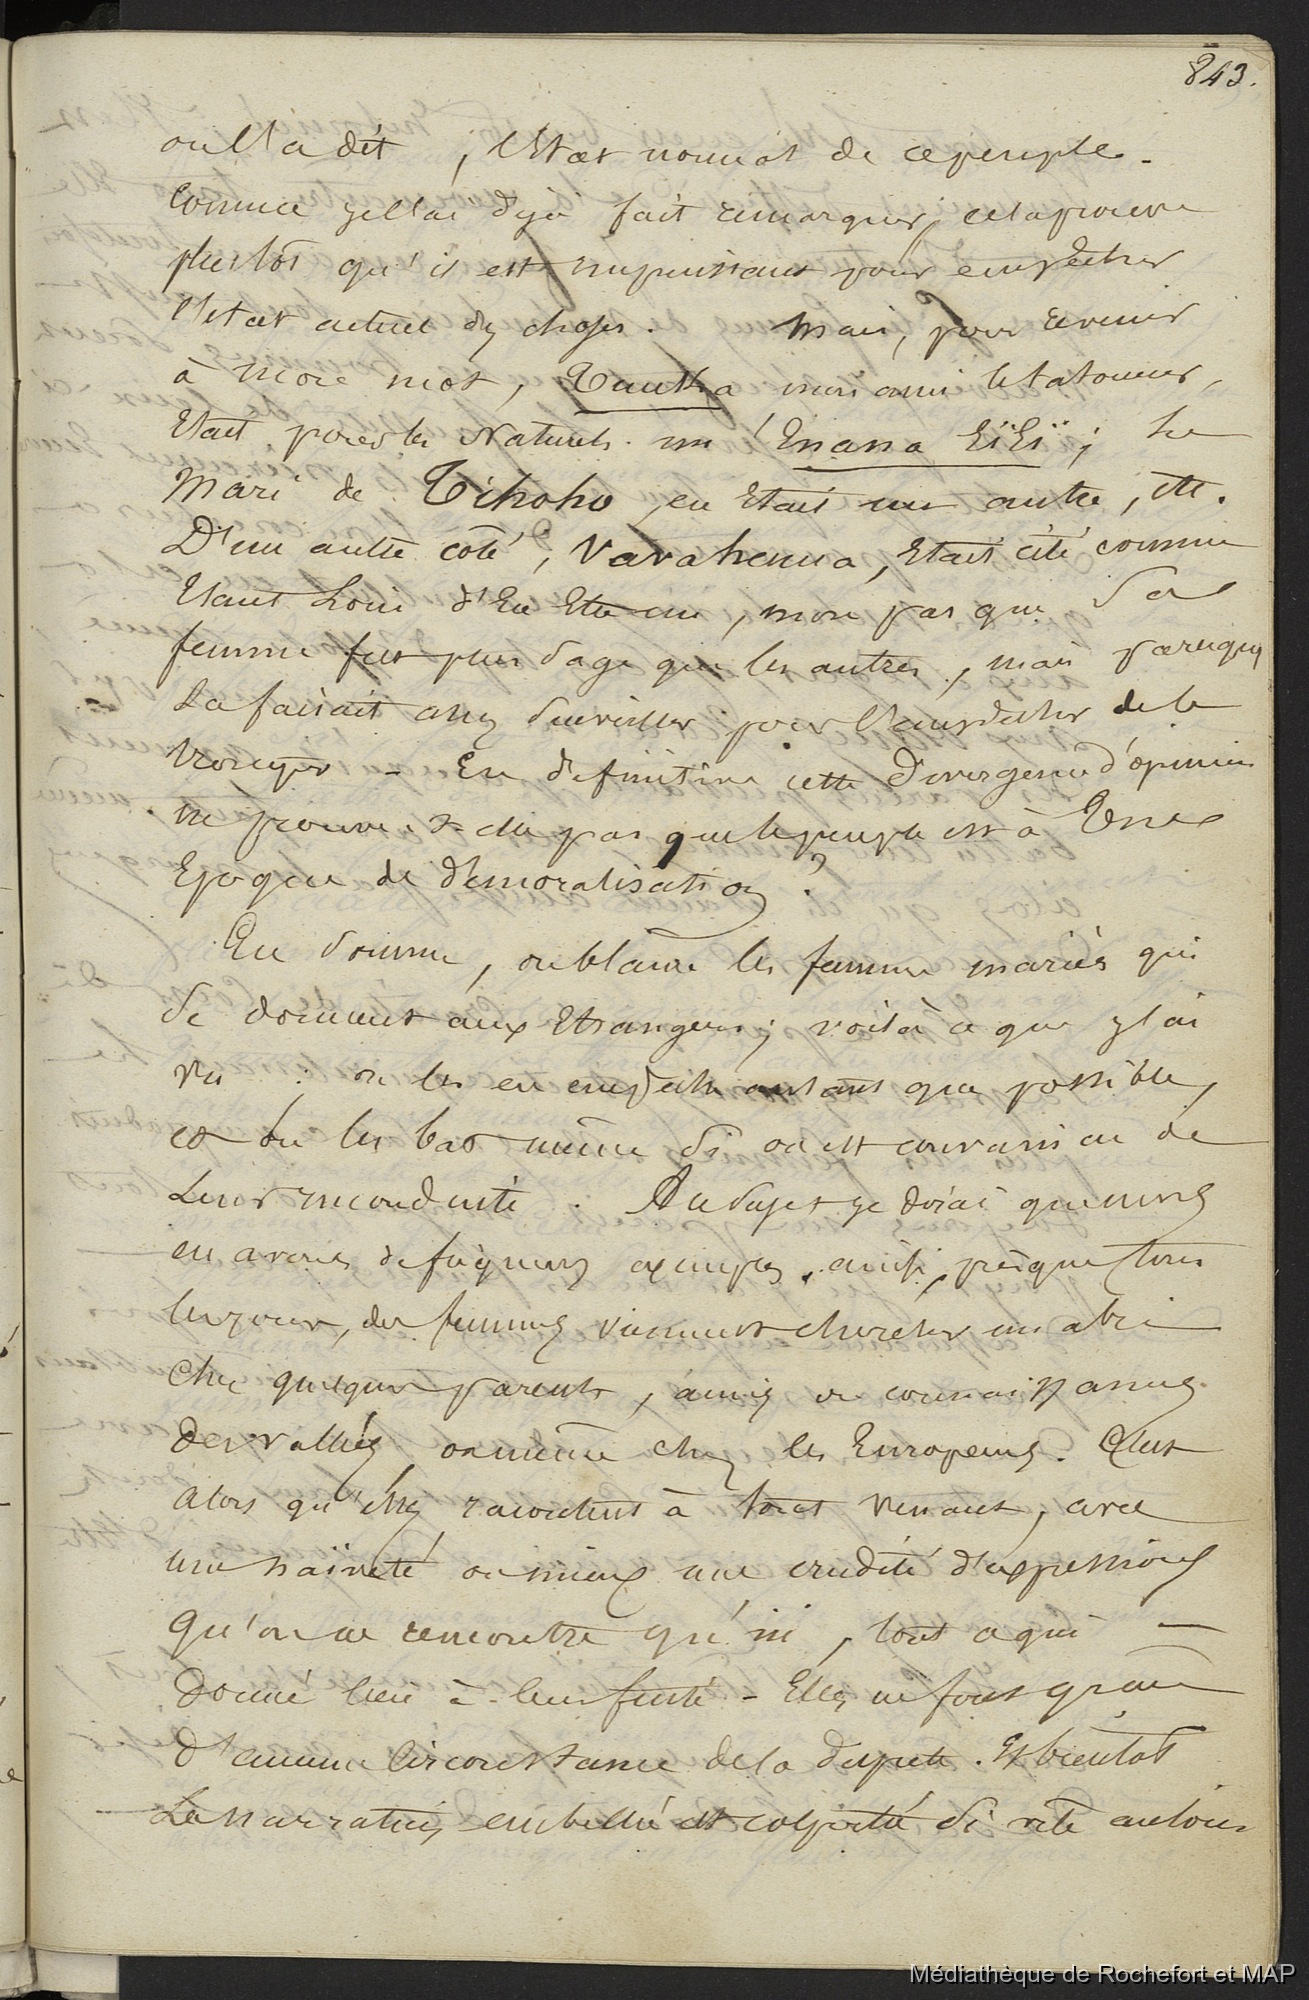 843.
on l'a dit, l'état normal de ce peuple.
Comme je l'ai déjà fait remarquer, cela prouve
plustôt qu'il est impuissant pour empêcher
l'état actuel des choses. Mais, pour revenir
à mon mot, mon ami le tatoueur,
Etait pour les Naturels un Enana EïEï; Le
Mari de Tihoho en Etait un autre, etc.
D'un autre coté, Vavahenua, Etait cité comme
Etant Loin d'En Etre un, non pas que Sa
femme fut plus sage que les autres, mais parcequ'il
La faisait assez surveiller pour l'empêcher de le
tromper - En définitive cette Divergence d'opinion
ne prouve-t-elle pas que le peuple est à Une
Epoque de démoralisation?
En somme, on blâme les femme mariés qui
Se donnent aux Etrangers; voilà ce que j'ai
vu; on les en empêche autant que possible,
et on les bat même Si on est convaincu de
Leur inconduite. Au Sujet je dirai que nous
en avons de fréquens exemples, ainsi, presque tous
les jours, des femmes viennent chercher un abri
Chez quelques parents, amis ou connaissances
des vallées, ou même chez les Européens. C'est
alors qu'elles racontent à tout venant, avec
une naïveté ou mieux une crudité d'expressions
qu'on ne rencontre qu'ici, tout ce qui —
Donné lieu à leur fuite - Elles ne font grâce
d'aucune Circonstance de la dispute. Et bientot
La narration, embellie est colportée Si vite autour